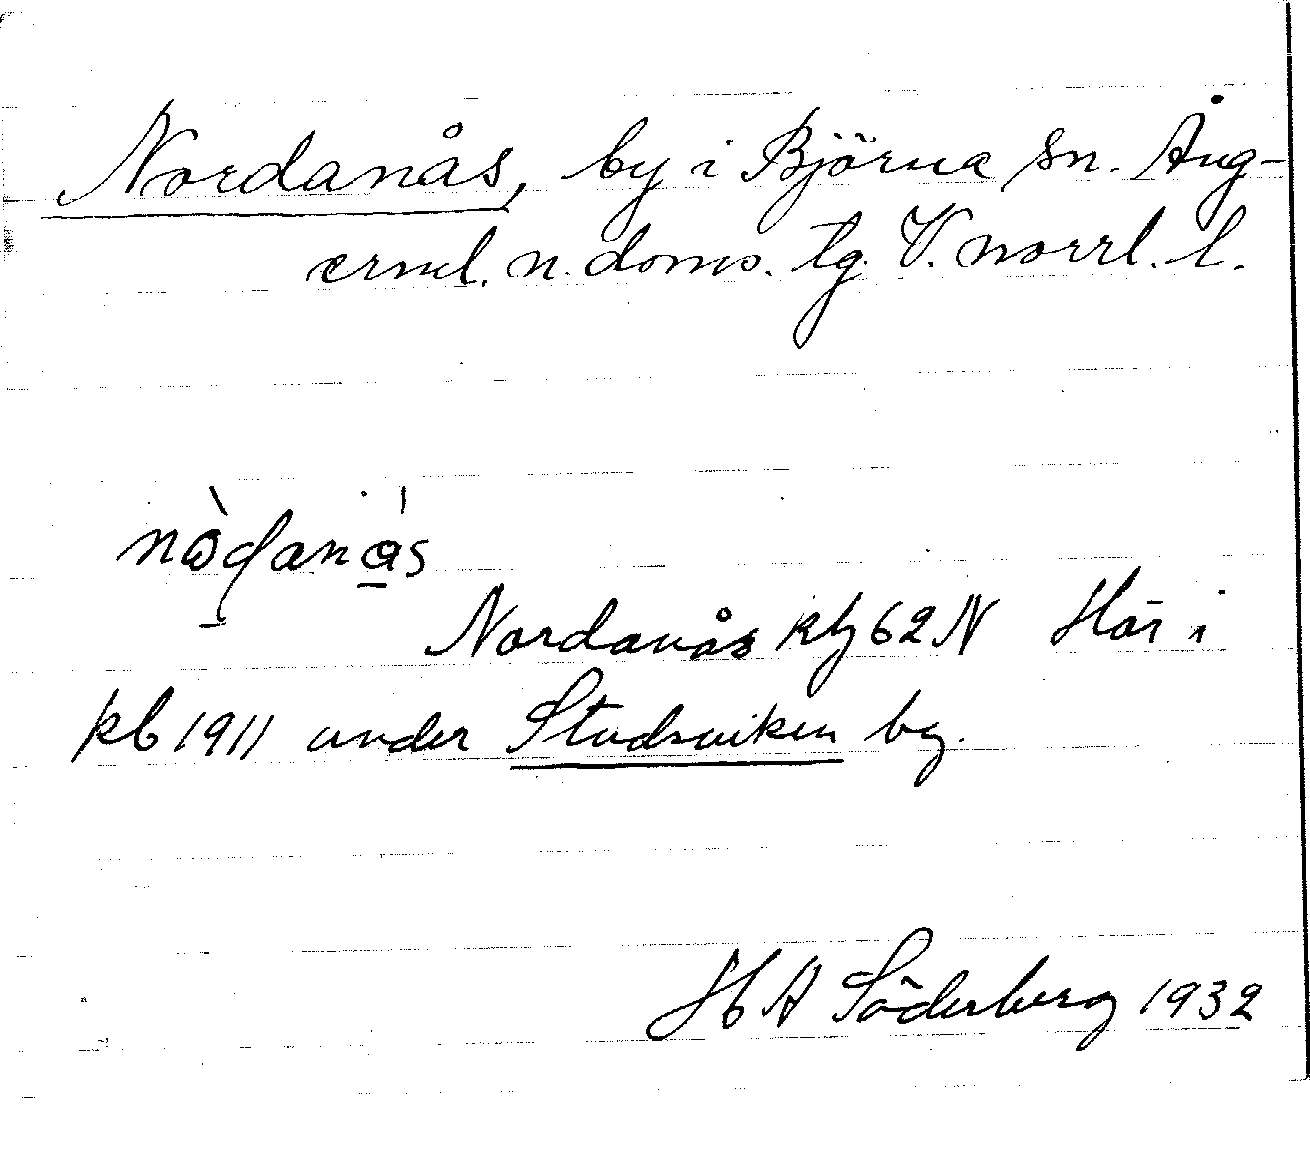 Nordanås, by i Björna sn. Ång-
erml. n. doms. tg. V. norrl. l.
Nordanås kbj 62 N Här i
kb 1911 under Studsviken by.
H A Söderberg 1932